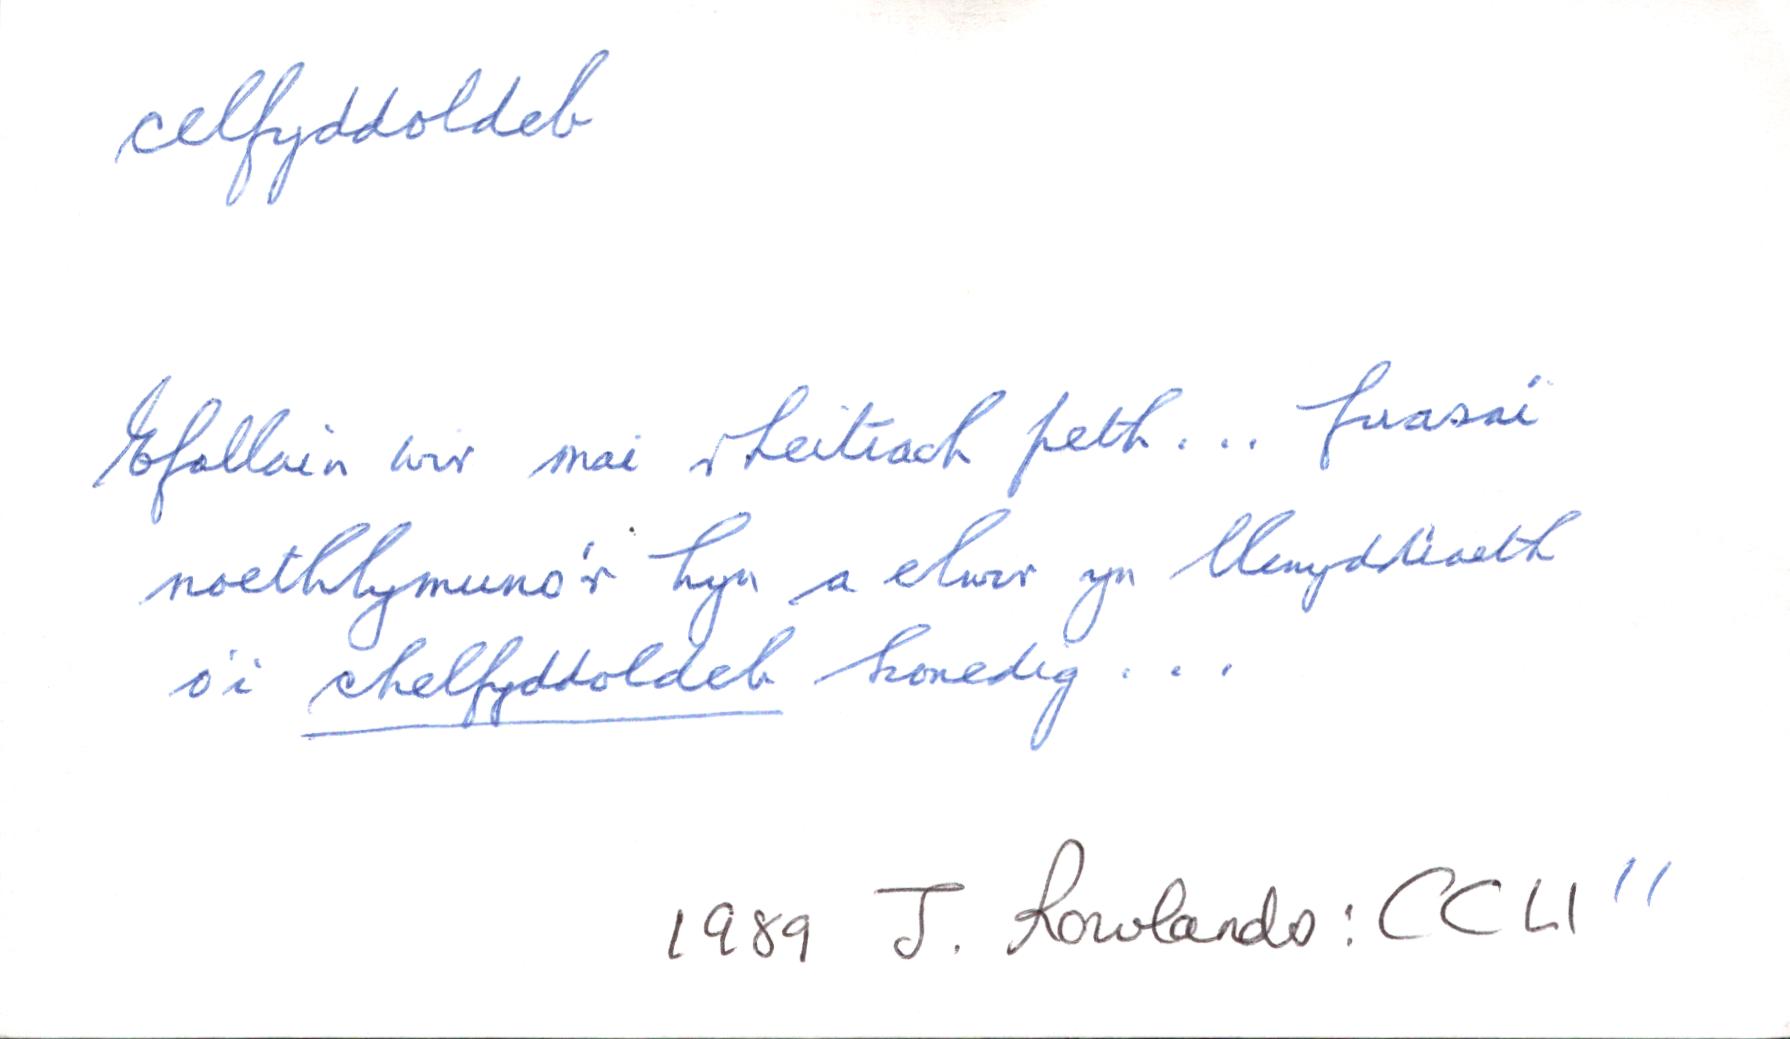 celfyddoldeb
Efallain wir mai rheitiach peth... fuasai
noethlymuno'r hyn a elwir yn llenyddiaeth
o'i chelfyddoldeb honedig...
1989 J. Rowlands: CCLl 11